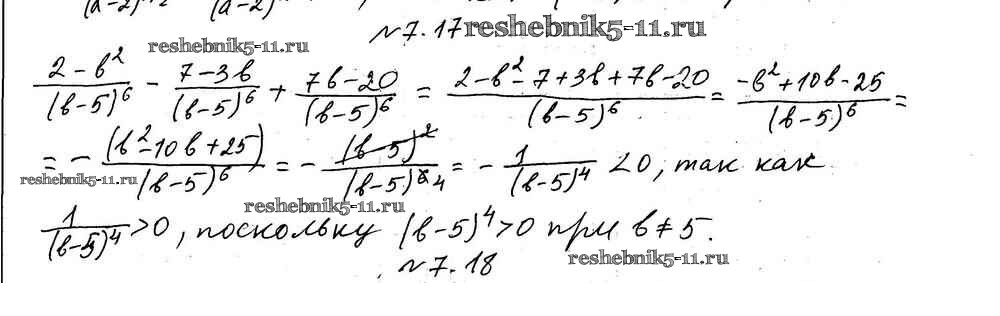 (a-2)   (a-2)
№7.17 reshebnik5-11.ru
reshebnik5-11.ru
(2-в²)/(в-5)⁶ - (7-3в)/(в-5)⁶ + (7в-20)/(в-5)⁶ = (2-в²-7+3в+7в-20)/(в-5)⁶ = (-в²+10в-25)/(в-5)⁶ =
= - (в²-10в+25)/(в-5)⁶ = - (в-5)²/(в-5)⁶ ⁴ = - 1/(в-5)⁴ <0, так как
reshebnik5-11.ru
reshebnik5-11.ru
1/(в-5)⁴ >0, поскольку (в-5)⁴>0 при в≠5.
№7.18 reshebnik5-11.ru